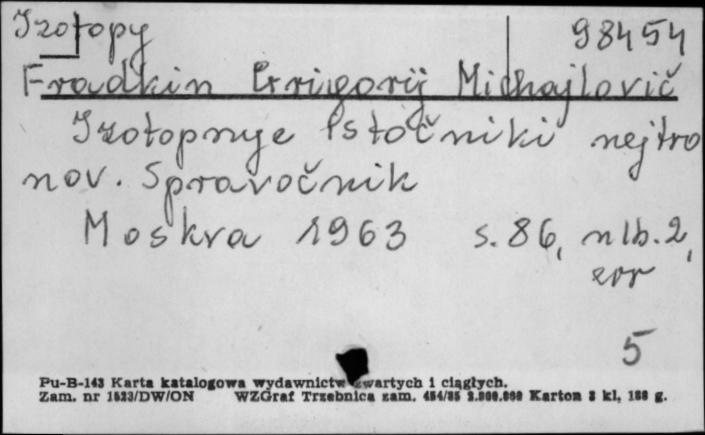 Izotopy 98454
Fradkin Grigorij Michajlovič
Izotopnye istočniki nejtro
nov. Spravočnik
Moskva 1963 s. 86, nlb. 2,
err
5
Pu-B-143 Karta katalogowa wydawnictw zwartych i ciągłych.
Zam. nr 1523/DW/ON WZGraf Trzebnica zam. 454/85 2.000.000 Karton 3 kl, 180 g.